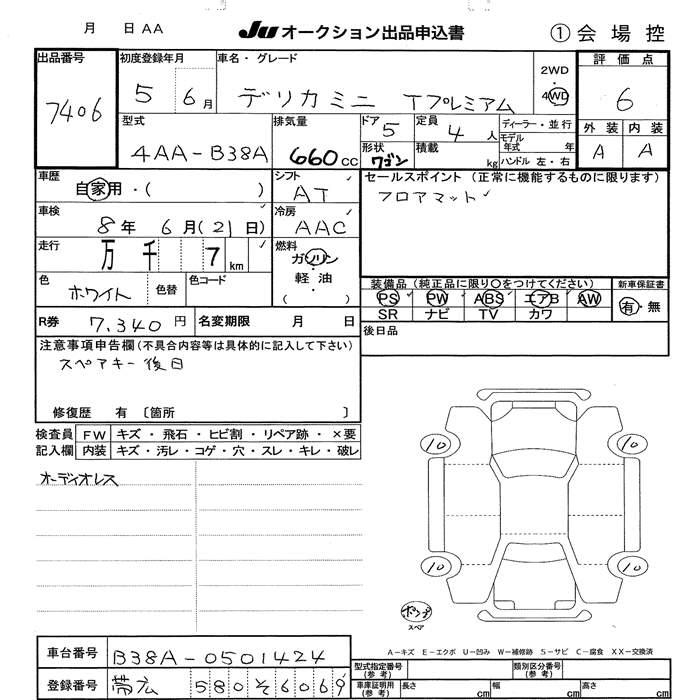 月 日 AA JU オークション出品申込書 ① 会場控
出品番号 7406
初度登録年月 5 6月
車名・グレード デリカミニ Tプレミアム
2WD
4WD
評価点 6
外装 内装
A A
型式 4AA-B38A
排気量 660cc
ドア 5
定員 4人
形状 ワゴン
積載 kg
ディーラー・並行
モデル年式 年
ハンドル 左・右
車歴 自家用・( )
シフト AT
セールスポイント (正常に機能するものに限ります)
フロアマット
車検 8年 6月(21日)
冷房 AAC
走行 万 千 7 km
燃料 ガソリン・軽油・( )
色 ホワイト 色替 色コード
装備品 (純正品に限り○をつけてください) 新車保証書
PS PW ABS エアB AW 有・無
SR ナビ TV カワ
R券 7,340円 名変期限 月 日
後日品
注意事項申告欄 (不具合内容等は具体的に記入して下さい)
スペアキー後日
修復歴 有 〔箇所 〕
検査員記入欄
FW キズ・飛石・ヒビ割・リペア跡・×要
内装 キズ・汚レ・コゲ・穴・スレ・キレ・破レ
オーディオレス
10 10
10 10
ポンプ
スペア
A-キズ E-エクボ U-凹み W-補修跡 S-サビ C-腐食 XX-交換済
車台番号 B38A-0501424
登録番号 帯広 580 そ 6069
型式指定番号(参考) 類別区分番号(参考)
車庫証明用(参考) 長さ cm 幅 cm 高さ cm